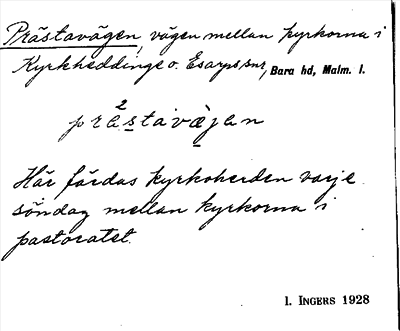 Prästavägen, vägen mellan kyrkorna i
Kyrkheddinge o. Esarps snr, Bara hd, Malm. l.
prästavàjen
Här färdas kyrkoherden varje
söndag mellan kyrkorna i
pastoratet.
I. INGERS 1928